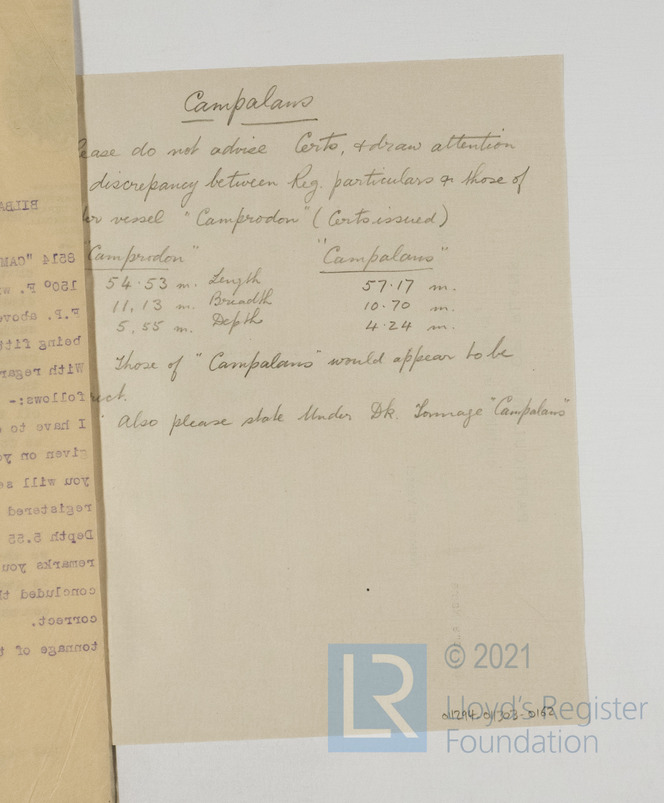 Campalans
ease do not advise Certs, & draw attention
discrepancy between Reg. particulars & those of
vessel "Camprodon" (Certs issued)
"Camprodon" "Campalans"
54.53 m. Length 57.17 m.
11.13 m. Breadth 10.70 m.
5.55 m. Depth 4.24 m.
Those of "Campalans" would appear to be
rect.
Also please state Under Dk. Tonnage "Campalans"
BILBA
8514 "CAM
150º F. w
F.P. above
being fitt
With regar
follows:-
I have to
given on yo
you will se
registered
Depth 5.55
remarks you
concluded th
correct.
tonnage of t
LR
© 2021
Lloyd's Register
Foundation
011294-011303-0162